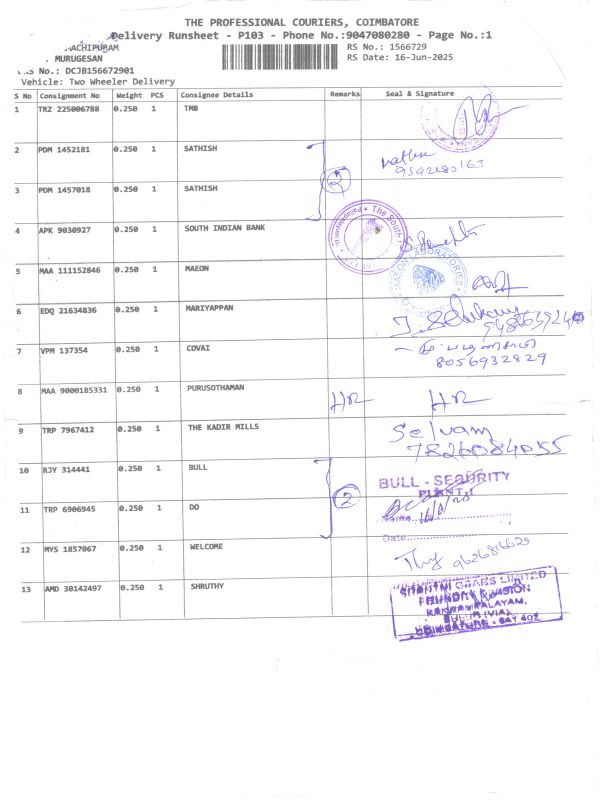 THE PROFESSIONAL COURIERS, COIMBATORE
Delivery Runsheet - P103 - Phone No.:9047080280 - Page No.:1
ACHIPURAM RS No.: 1566729
. MURUGESAN RS Date: 16-Jun-2025
RS No.: DCJB156672901
Vehicle: Two Wheeler Delivery
S No Consignment No Weight PCS Consignee Details Remarks Seal & Signature
1 TRZ 225006788 0.250 1 TMB
2 PDM 1452181 0.250 1 SATHISH
2
3 PDM 1457018 0.250 1 SATHISH
4 APK 9030927 0.250 1 SOUTH INDIAN BANK
The South
5 MAA 111152846 0.250 1 MAEON
6 EDQ 21634836 0.250 1 MARIYAPPAN
7 VPM 137354 0.250 1 COVAI
8056932829
8 MAA 9000185331 0.250 1 PURUSOTHAMAN
9 TRP 7967412 0.250 1 THE KADIR MILLS Selvam
7826084055
10 RJY 314441 0.250 1 BULL
BULL - SECURITY
PLANT-I
2
11 TRP 6906945 0.250 1 DO
Name
Date
12 MYS 1857067 0.250 1 WELCOME
13 AMD 30142497 0.250 1 SHRUTHY
SHANTHI GEARS LIMITED
FOUNDRY DIVISION
KANNAMPALAYAM,
SULUR (VIA),
COIMBATORE - 641 402